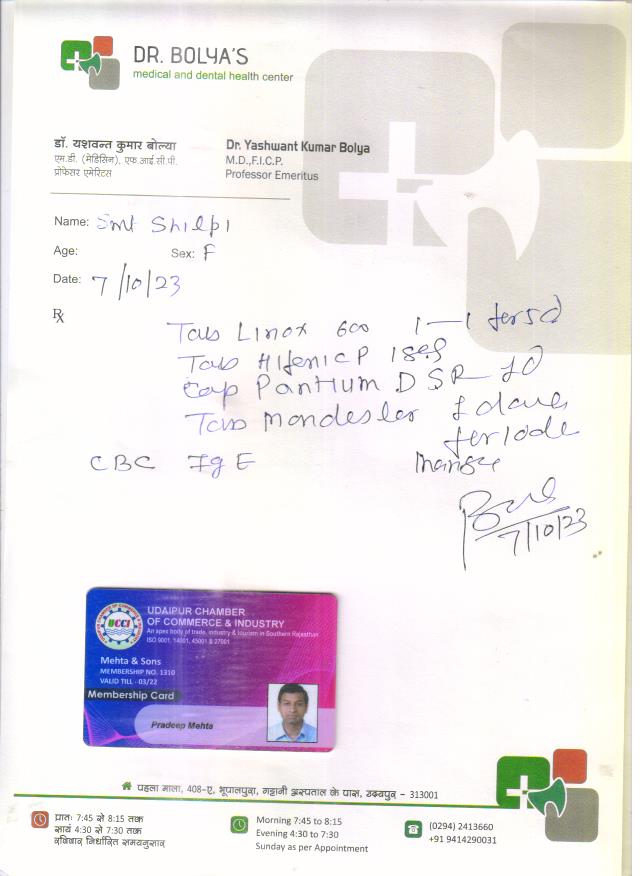 DR. BOLYA'S
medical and dental health center
डॉ. यशवन्त कुमार बोल्या
एम.डी. (मेडिसिन), एफ.आई.सी.पी.
प्रोफेसर एमेरिटस
Dr. Yashwant Kumar Bolya
M.D.,F.I.C.P.
Professor Emeritus
Name: Smt Shilpi
Age: Sex: F
Date: 7/10/23
Rx
Tab Linox 600 1—1 for 5d
Tab Hifenic P
Cap Pantium DSR
Tab
CBC IgE
7/10/23
UCCI
UDAIPUR CHAMBER
OF COMMERCE & INDUSTRY
An apex body of trade, industry & tourism in Southern Rajasthan
ISO 9001, 14001, 45001 & 27001
Mehta & Sons
MEMBERSHIP NO. 1310
VALID TILL - 03/22
Membership Card
Pradeep Mehta
पहला माला, 408-ए, भूपालपुरा, गट्टानी अस्पताल के पास, उदयपुर - 313001
प्रातः 7:45 से 8:15 तक
सायं 4:30 से 7:30 तक
रविवार निर्धारित समयनुसार
Morning 7:45 to 8:15
Evening 4:30 to 7:30
Sunday as per Appointment
(0294) 2413660
+91 9414290031